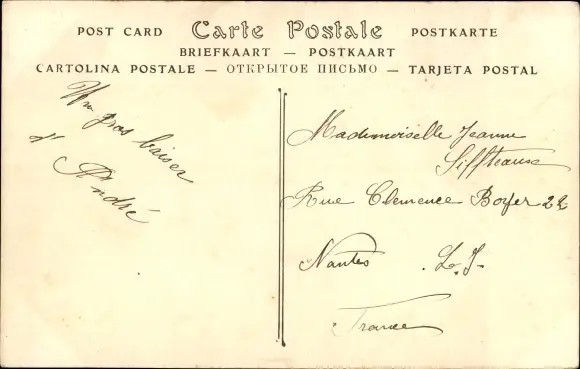 POST CARD Carte Postale POSTKARTE
BRIEFKAART — POSTKAART
CARTOLINA POSTALE — ОТКРЫТОЕ ПИСЬМО — TARJETA POSTAL
Un gros baiser
d'André
Mademoiselle Jeanne
Rue Clemence Boyer 22
Nantes L. I.
France